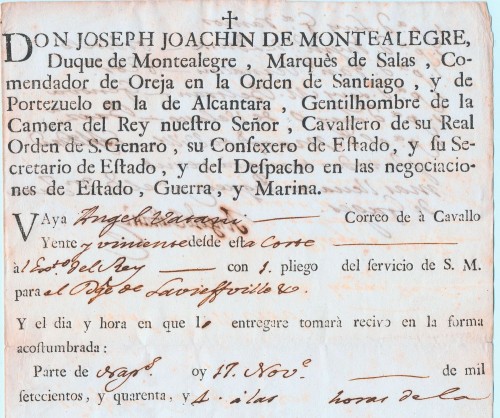 DON JOSEPH JOACHIN DE MONTEALEGRE,
Duque de Montealegre, Marquès de Salas, Co-
mendador de Oreja en la Orden de Santiago, y de
Portezuelo en la de Alcantara, Gentilhombre de la
Camera del Rey nuestro Señor, Cavallero de su Real
Orden de S. Genaro, su Consexero de Estado, y su Se-
cretario de Estado, y del Despacho en las negociacio-
nes de Estado, Guerra, y Marina.
VAya Angel Correo de à Cavallo
Yente y viniente desde esta Corte
à l Exto. del Rey con 1. pliego del servicio de S. M.
para el Pñe. de Lavieffville &.
Y el dia y hora en que lo entregare tomarà recivo en la forma
acostumbrada:
Parte de Nap.s oy 17. Nov.e de mil
setecientos, y quarenta, y 4. à las horas de la